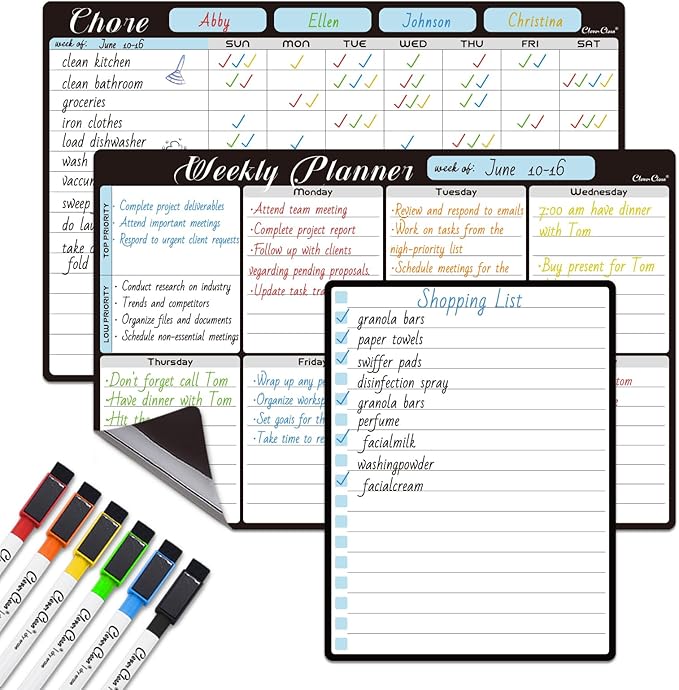 Chore Abby Ellen Johnson Christina Clever Clean®
week of: June 10-16 SUN MON TUE WED THU FRI SAT
clean kitchen
clean bathroom
groceries
iron clothes
load dishwasher
wash
vaccum
sweep
do lau
take o
fold
Weekly Planner week of: June 10-16
TOP PRIORITY
· Complete project deliverables
· Attend important meetings
· Respond to urgent client requests
LOW PRIORITY
· Conduct research on industry
· Trends and competitors
· Organize files and documents
· Schedule non-essential meetings
Monday
· Attend team meeting
· Complete project report
· Follow up with clients
vegarding pending proposals.
· Update task tra
Tuesday
· Review and respond to emails
· Work on tasks from the
nigh-priority list
· Schedule meetings for the
Wednesday
7:00 am have dinner
with Tom
Buy present for Tom
Thursday
· Don't forget call Tom
· Have dinner with Tom
· Hit the
Friday
· Wrap up any pe
· Organize worksp
· Set goals for th
· Take time to re
tom
Shopping List
granola bars
paper towels
swiffer pads
disinfection spray
granola bars
perfume
facialmilk
washingpowder
facialcream